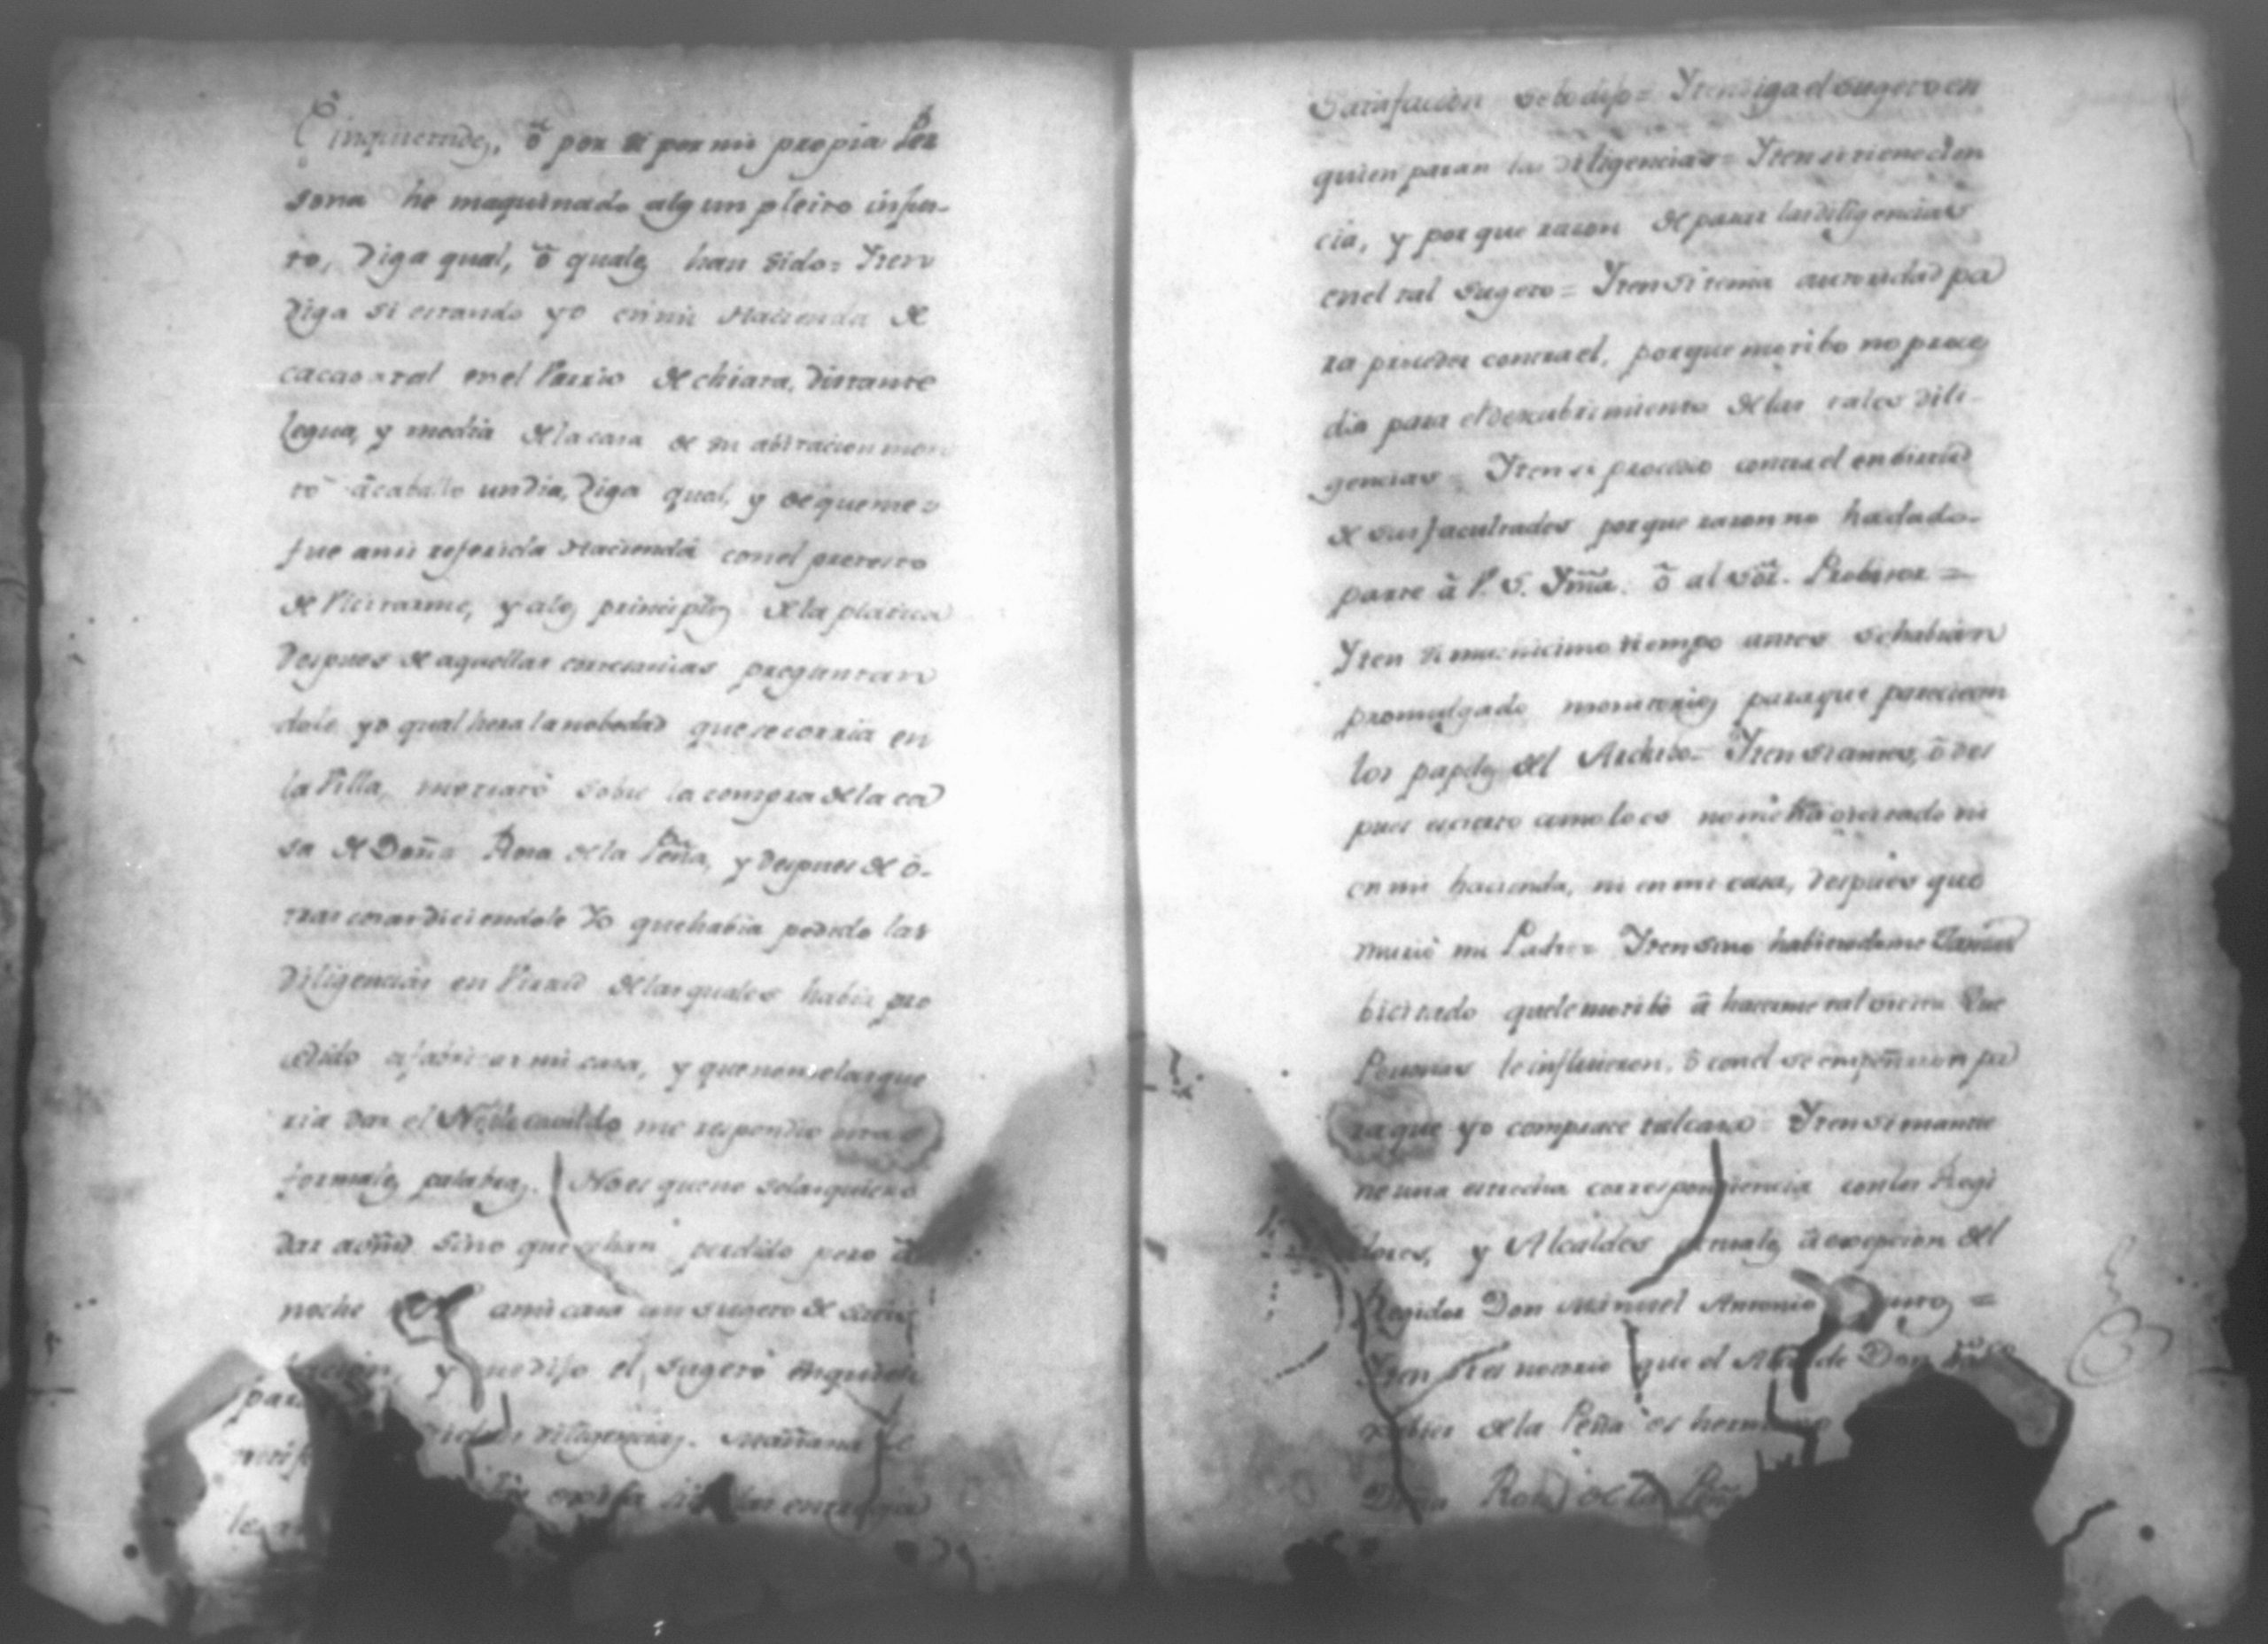 inquietudes, ô por si por mi propia Per
sona he maquinado algun pleito infus-
to, diga qual, ô quales han sido= Yten
diga si estando yo en mi Hacienda de
cacaoatal en el Parrio de chiara, distante
legua, y media de la casa de su abitacion mon
tô â caballo un dia, diga qual, y de que mes
fue a mi referida Hacienda con el pretesto
de Vicitarme, y a los principios de la platica
despues de aquellas cortesanias preguntan
dole yo qual hera la nobedad que se corria en
la Villa, me tratô sobre la compra de la ca
sa de Doña Rosa de la Peña, y despues de ô-
tras cosas diciendole Yo que habia pedido las
diligencias en Virtud de las quales habia pro
cedido a fabricar mi casa, y que no me las que
ria dar el Noble cavildo me respondio estas
formales palabras. No es que no se las quieren
dar a vmd sino que se han perdido pero â
noche a mi casa un sugeto de
y me dijo el sugeto
diligencias. Mañana se
las entregara
Satisfacion se lo dijo= Yten diga el sugeto en
quien paran las diligencias= Yten si tiene cien
cia, y por que razon de parar las diligencias
en el tal sugeto= Yten si tenia autoridad pa
ra proceder contra el, por que motibo no proce
dio para el descubrimiento de las tales dili-
gencias= Yten si procedio contra el en birtud
de sus facultades por que razon no ha dado-
parte â V. S. Yma. ô al sôr. Probisor=
Yten si muchicimo tiempo antes se habian
promulgado monitorios para que pareciecen
los papeles del Archibo= Yten si antes, ô des
pues es cierto como lo es no me ha vicitado ni
en mi hacienda, ni en mi casa, despues que
murió mi Padre= Yten si no habiendome Jamas
bicitado que le motibô â hacerme tal vicita Que
Personas le influieron, ô con el se empeñaron pa
ra que yo comprace tal casa= Yten si mantie
ne una estrecha correspondencia con los Regi
dores, y Alcaldes actuales â excepcion del
Regidor Don Manuel Antonio =
Yten si es notorio que el Alcalde Don Franco
Xabier de la Peña es hermano
Doña Rosa de la Peña